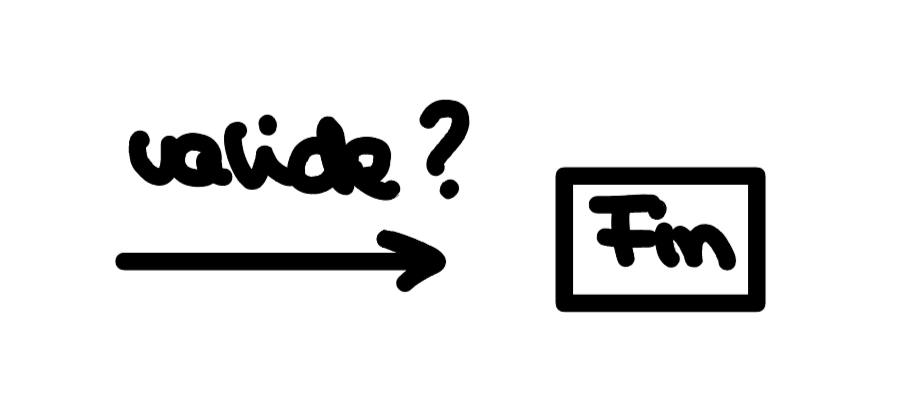 valide ?
Fin